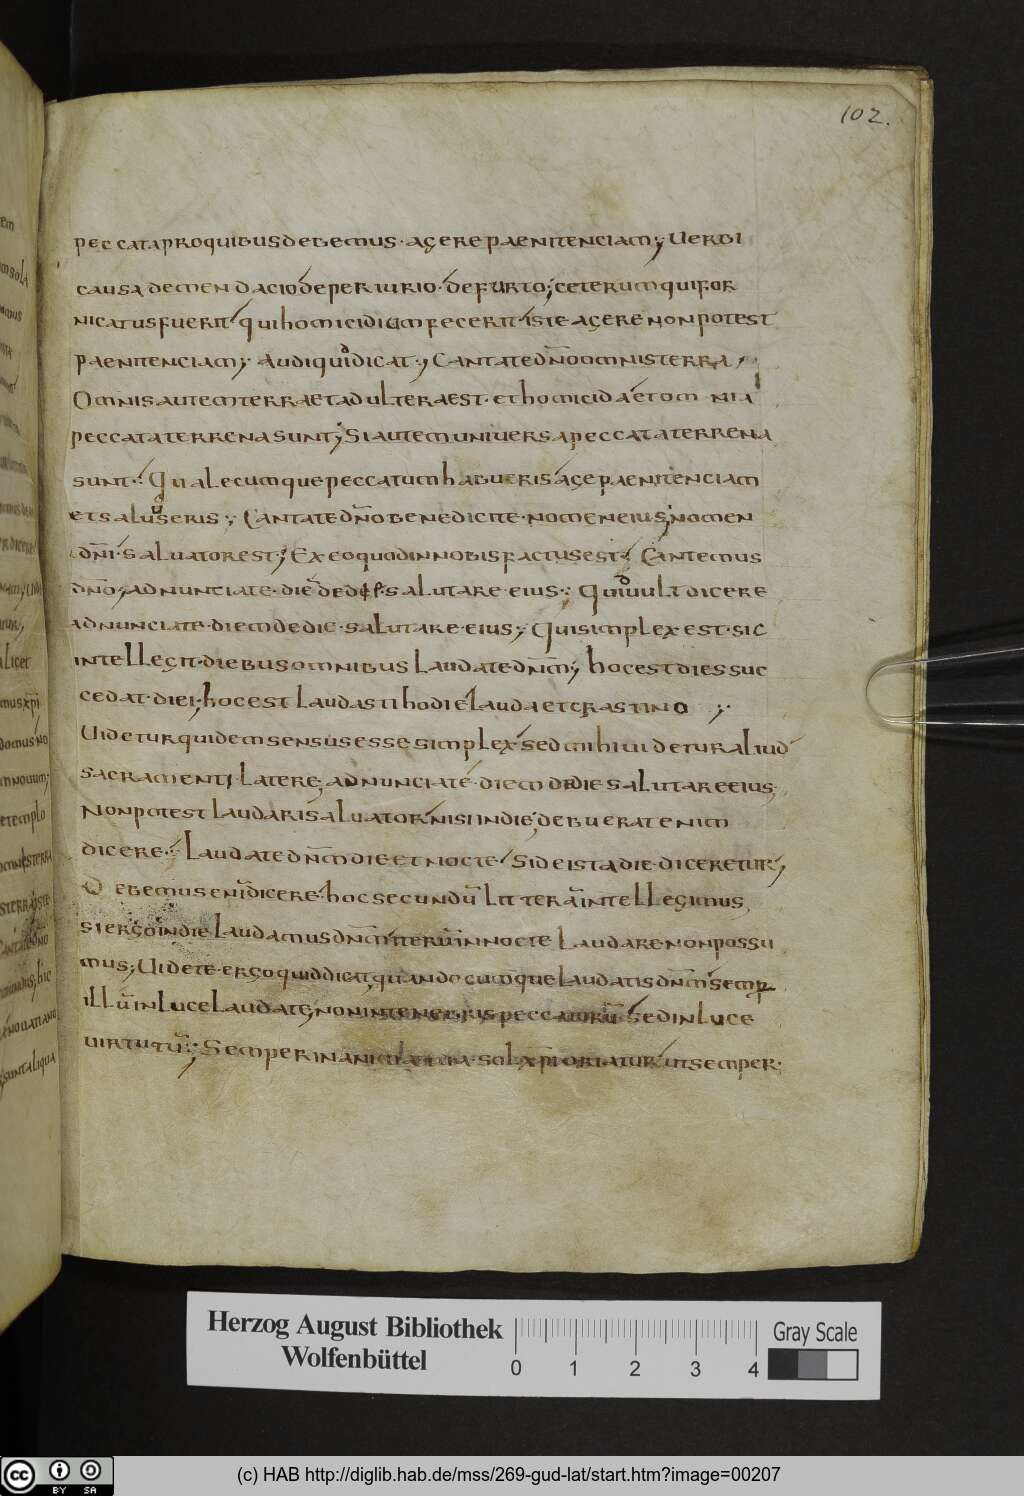 102.
peccata pro quibus debemus · agere paenitenciam; Uerbi
causa demendacio de periurio · de furto; ceterum qui for
nicatus fuerit qui homicidium fecerit iste agere non potest
paenitenciam; Audi quid dicat; Cantate dn̄o omnis terra,
Omnis autem terra et adultera est · et homicida et omnia
peccata terrena sunt; Si autem uniuersa peccata terrena
sunt · Qualecumque peccatum habueris age paenitenciam
et saluus eris; Cantate dn̄o benedicite · nomen eius; nomen
dn̄i · saluator est; Ex eo quod in nobis factus est · Cantemus
dn̄o; adnunciate · diē de dię · salutare · eius; Quid uult dicere
adnunciate · diem de die · salutare · eius; Qui simplex est · sic
intellegit · diebus omnibus laudate dn̄m; hoc est dies suc
cedat · diei; hoc est laudasti hodie lauda et crastino;
Uidetur quidem sensus esse simplex sed mihi uidetur aliud
sacramenti latere; adnunciate · diem de die salutare eius;
Non potest laudari saluator nisi in die; debuerat enim
dicere · Laudate dn̄m die et nocte · Si de ista die · diceretur;
Debemus eni dicere · hoc secundū litterā intellegimus,
si ergo in die laudamus dn̄m iterū in nocte laudare non possu
mus; Uidete · ergo quid dicat; quandocumque laudatis dn̄m semp
illū in luce laudate; non in tenebris peccatorū · Sed in luce
uirtutū; Semper in anima uestra · sol xp̄i oriatur ut semper ·
em
nsola
alicet
mus xp̄i
domus no
m nouum;
et templo
omnis terra
Herzog August Bibliothek
Wolfenbüttel
0 1 2 3 4
Gray Scale
cc BY SA
(c) HAB http://diglib.hab.de/mss/269-gud-lat/start.htm?image=00207